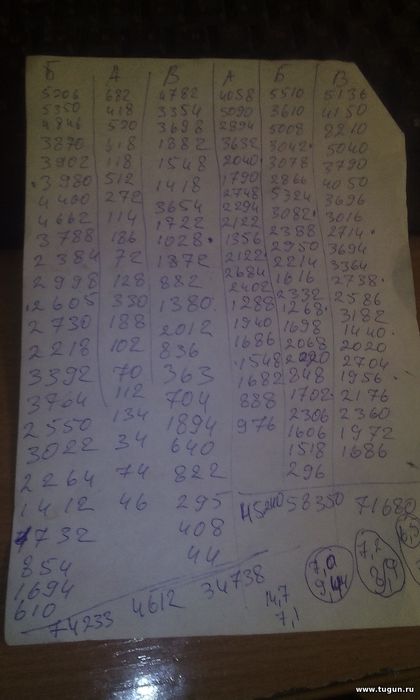 Б А В А Б В
5206 682 4782 4058 5510 5136
5350 418 3354 5090 3610 4150
4846 520 3698 2894 5008 8210
3870 118 1882 3682 3042 5040
3902 118 1548 2040 3078 3790
3980 512 1418 1790 2866 4050
4400 272 3654 2748 5324 3696
4662 114 1722 2294 3082 3016
3788 186 1028 2122 2388 2714
2384 72 1872 1356 2950 3694
2998 128 882 2122 2214 3364
2605 330 1380 2684 1616 2738
2730 188 2012 2402 2332 2586
2218 102 836 1288 1268 3182
3392 70 363 1940 1698 1440
3764 112 704 1686 2068 2020
2550 134 1894 1548 2020 2704
3022 34 640 1682 848 1956
2264 74 822 888 1702 2176
1412 46 295 976 2306 2360
1732 408 1606 1972
854 44 1518 1686
1694 296
610
74233 4612 34738 45240 58350 71680
14,7
7,1
7,0
9,4
7,2
8,9
www.tugun.ru